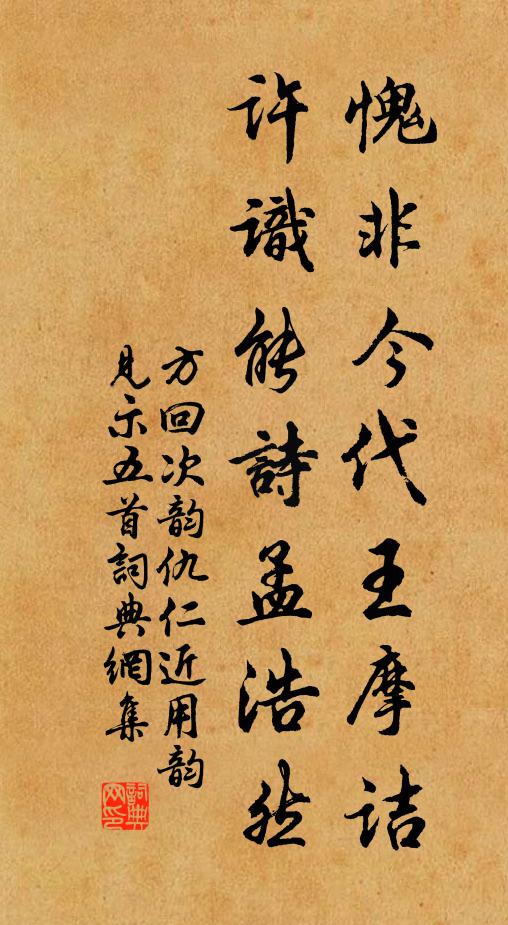 愧非今代王摩詰
許識能詩孟浩然
方回次韵仇仁近用韵
見示五首詞典網集
詞典
网印